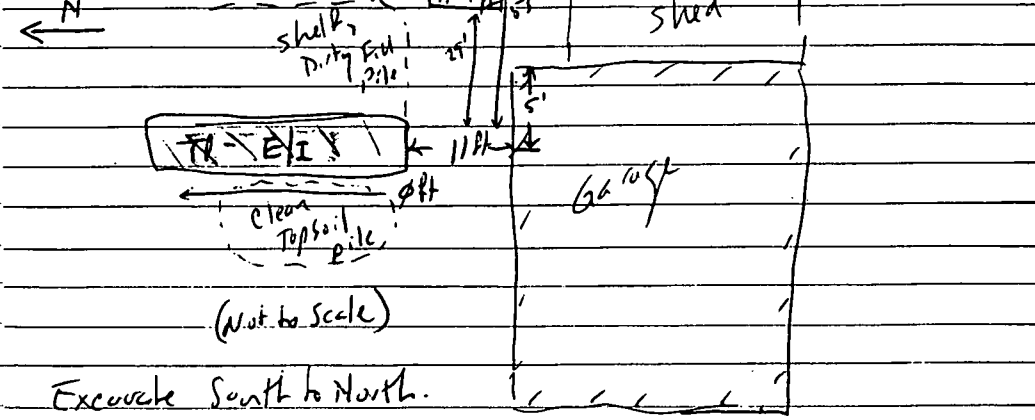 N
shed
Shelby
Dirty Fill
Pile
29'
5'
TR-EI
11 ft
Garage
Øft
Clean
Topsoil
Pile
(Not to Scale)
Excavate South to North.